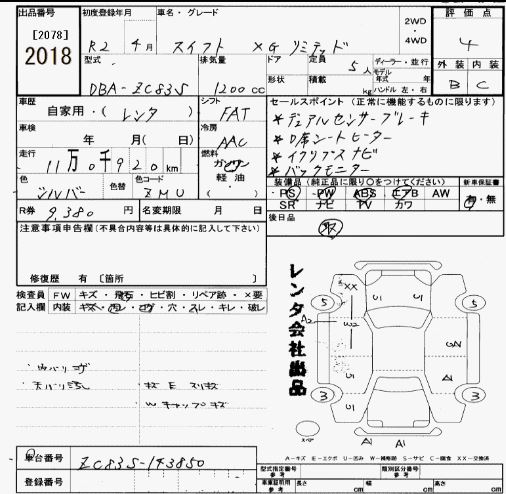 出品番号
[2078]
2018
初度登録年月
R2 年 4月
車名・グレード
スイフト XG リミテッド
2WD
・
4WD
評価点
4
型式
DBA-ZC83S
排気量
1200 cc
ドア
形状
定員
5人
積載
kg
ディーラー・並行
モデル年式 年
ハンドル 左・右
外装 内装
B C
車歴
自家用・(レンタ)
シフト
FAT
セールスポイント (正常に機能するものに限ります)
★デュアルセンサーブレーキ
★D席シートヒーター
★イクリプスナビ
★バックモニター
車検
年 月(日)
冷房
AAC
走行
11万0千920km
燃料
ガソリン
軽油
・( )
色
シルバー
色替
色コード
ZMU
装備品(純正品に限り○をつけてください)
PS PW ABS エアB AW
SR ナビ TV カワ
新車保証書
有・無
R券 9,380 円
名変期限 月 日
後日品
取
注意事項申告欄(不具合内容等は具体的に記入して下さい)
修復歴 有 〔箇所 〕
検査員記入欄
FW キズ・飛石・ヒビ割・リペア跡・×要
内装 キズ・汚・コゲ・穴・スレ・キレ・破レ
レンタ会社出品
XX
A2
W2
U1
U1
U1
U1
A1
A1
A1
5
5
3
3
A-キズ E-エクボ U-凹み W-補修跡 S-サビ C-腐食 XX-交換済
車台番号 ZC83S-143850
登録番号
型式指定番号
参考
類別区分番号
参考
車庫証明用
参考
長さ cm
幅 cm
高さ cm